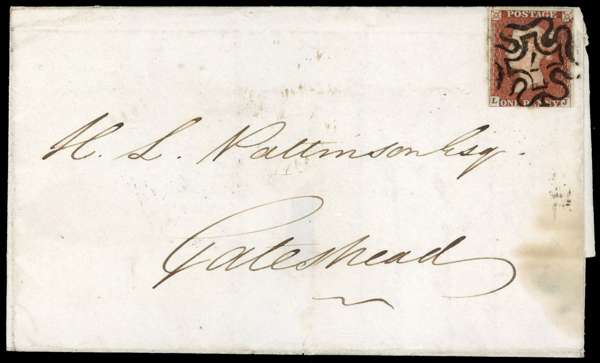 POSTAGE
ONE PENNY
L J
H. L. Pattinson Esq.
Gateshead